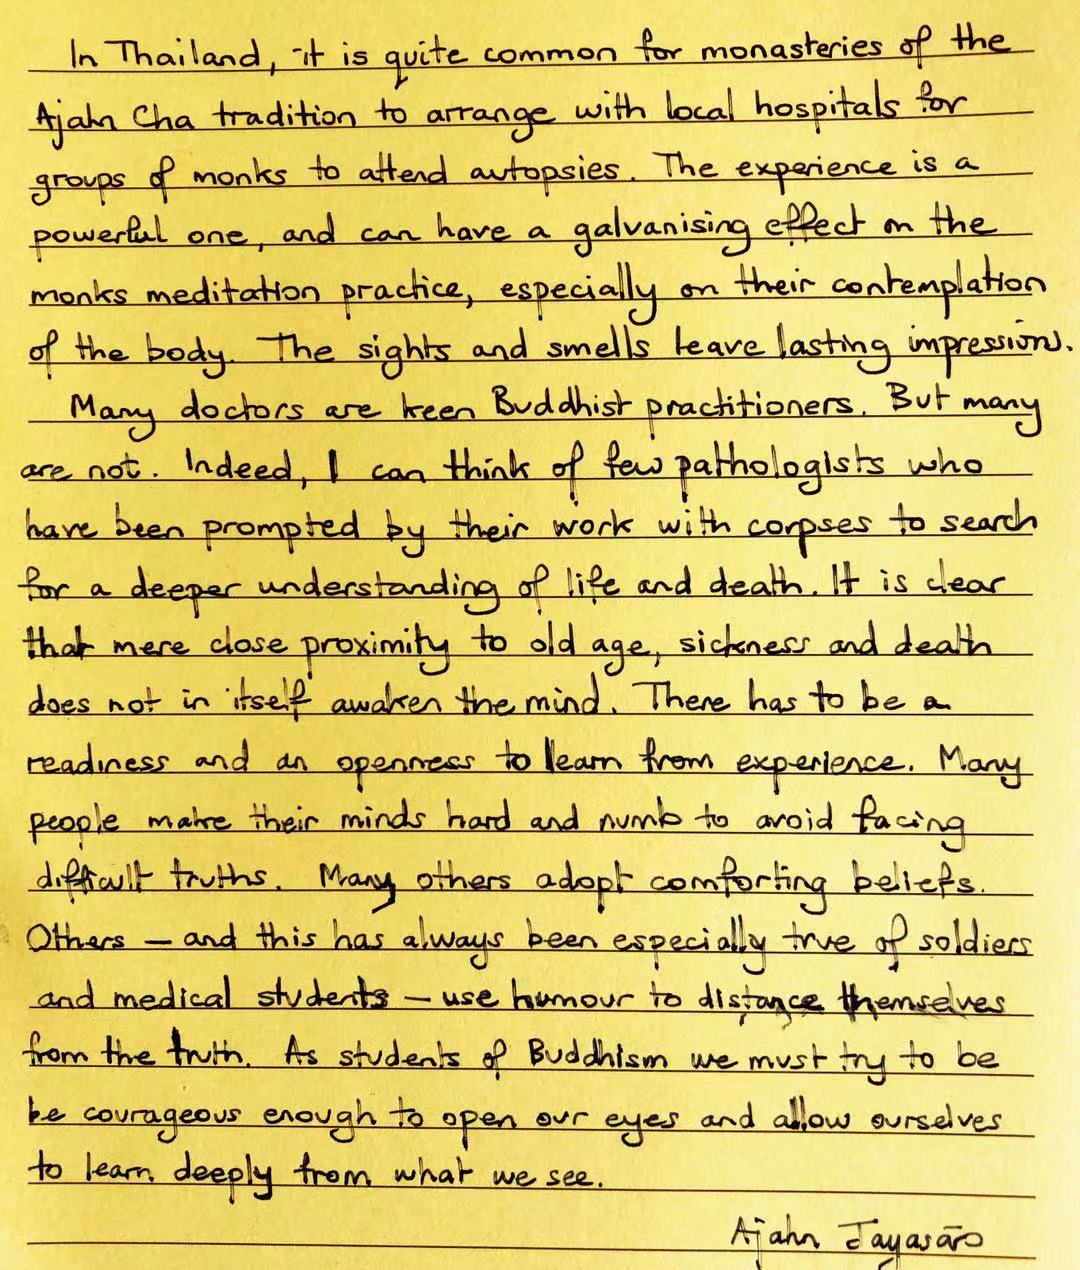 In Thailand, it is quite common for monasteries of the
Ajahn Cha tradition to arrange with local hospitals for
groups of monks to attend autopsies. The experience is a
powerful one, and can have a galvanising effect on the
monks meditation practice, especially on their contemplation
of the body. The sights and smells leave lasting impression.
Many doctors are keen Buddhist practitioners. But many
are not. Indeed, I can think of few pathologists who
have been prompted by their work with corpses to search
for a deeper understanding of life and death. It is clear
that mere close proximity to old age, sickness and death
does not in itself awaken the mind. There has to be a
readiness and an openness to learn from experience. Many
people make their minds hard and numb to avoid facing
difficult truths. Many others adopt comforting beliefs.
Others – and this has always been especially true of soldiers
and medical students – use humour to distance themselves
from the truth. As students of Buddhism we must try to be
be courageous enough to open our eyes and allow ourselves
to learn deeply from what we see.
Ajahn Jayasāro